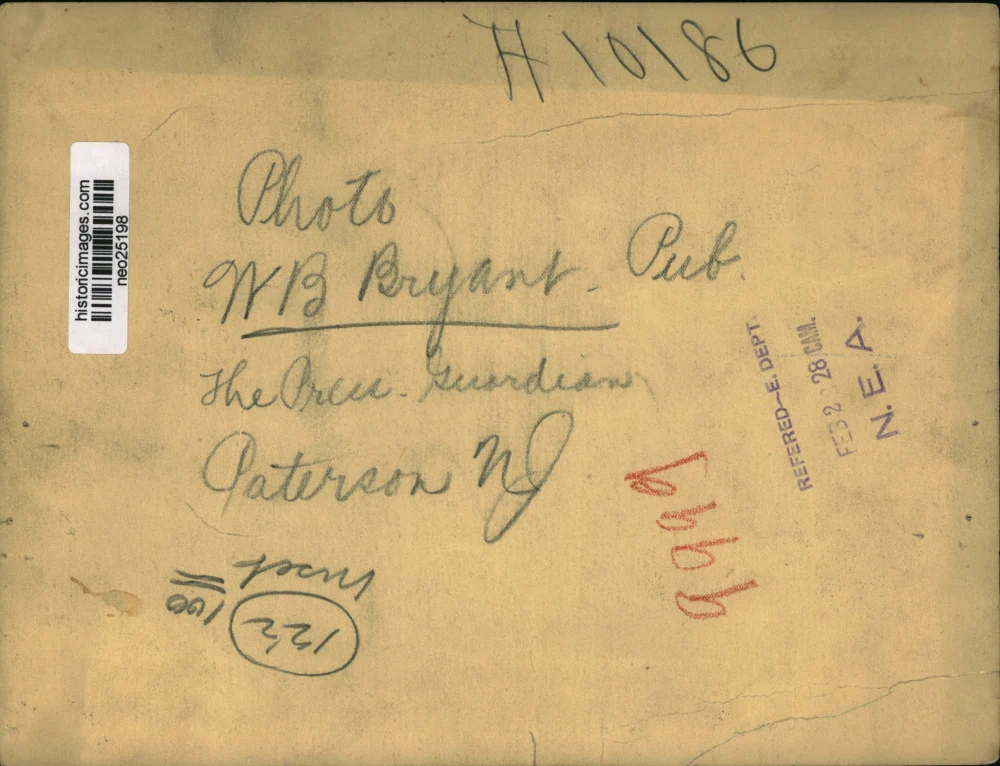 H 10186
Photo
W B Bryant. Pub.
The Press. Guardian
Paterson NJ
historicimages.com
neo25198
REFERED-E. DEPT.
FEB 2 28 CAM.
N. E. A.
Inset
122